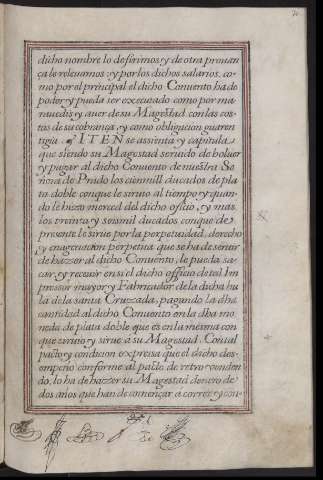 dicho nombre lo deferimos y de otra prouan
ça le releuamos: y por los dichos salarios. co-
mo por el principal el dicho Conuento ha de
poder y pueda ser executado como por ma
rauedis y auer de su Magestad con las cos
tas de su cobrança, y como obligacion guaren
tigia. ITEN se assienta y capitula
que siendo su Magestad seruido de boluer
y pagar al dicho Conuento de nuestra Se
ñora de Prado los cien mill ducados de pla
ta doble conque le siruio al tiempo y quan
do le hizo merced del dicho oficio, y mas
los treinta y seis mil ducados conque de
presente le sirue por la perpetuidad, derecho
y enagenacion perpetua que se ha de seruir
de hazer al dicho Conuento, le pueda sa
car, y receuir en si el dicho officio de tal Im
pressor mayor y Fabricador de la dicha bu
la de la santa Cruzada, pagando la dha
cantidad al dicho Conuento en la dha mo
neda de plata doble que es en la mesma con
que siruio y sirue a su Magestad. Con tal
pacto y condicion expresa que el dicho des-
empeño conforme al pacto de retro venden
do, lo ha de hazer su Magestad dentro de
dos años que han de començar a correr y con-